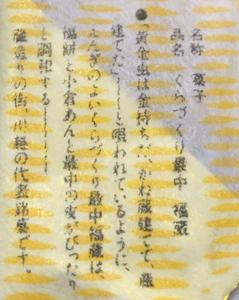 名称 菓子
品名 くらづくり最中 福蔵
●「黄金虫は金持ちだ、かね蔵建てた、蔵
建てた〜〜」と唄われているように、
えんぎのよいくらづくり最中福蔵は、
小倉あんと最中の皮がぴったり
と調和する
蔵造りの街、川越の代表銘菓です。